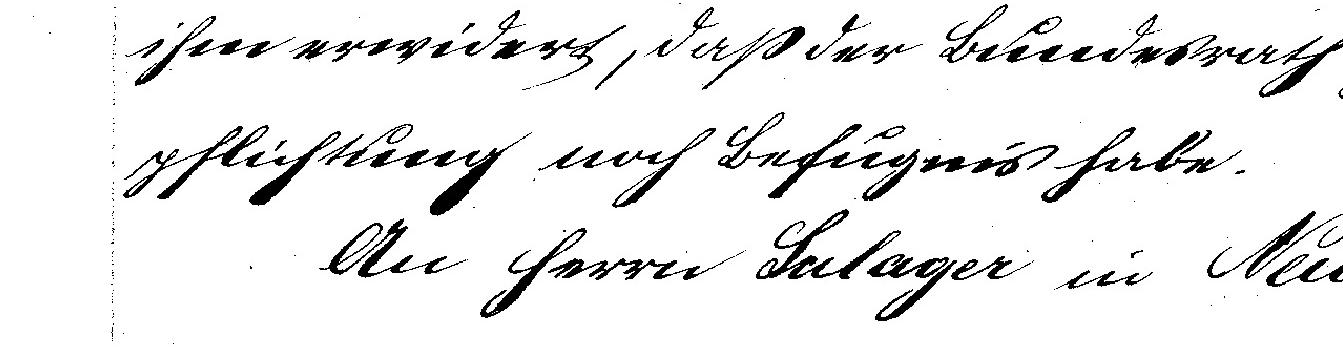 ihm erwidert, daß der Bundesrath
pflichtung noch Befugnis habe.
An Herrn Salager in Neu